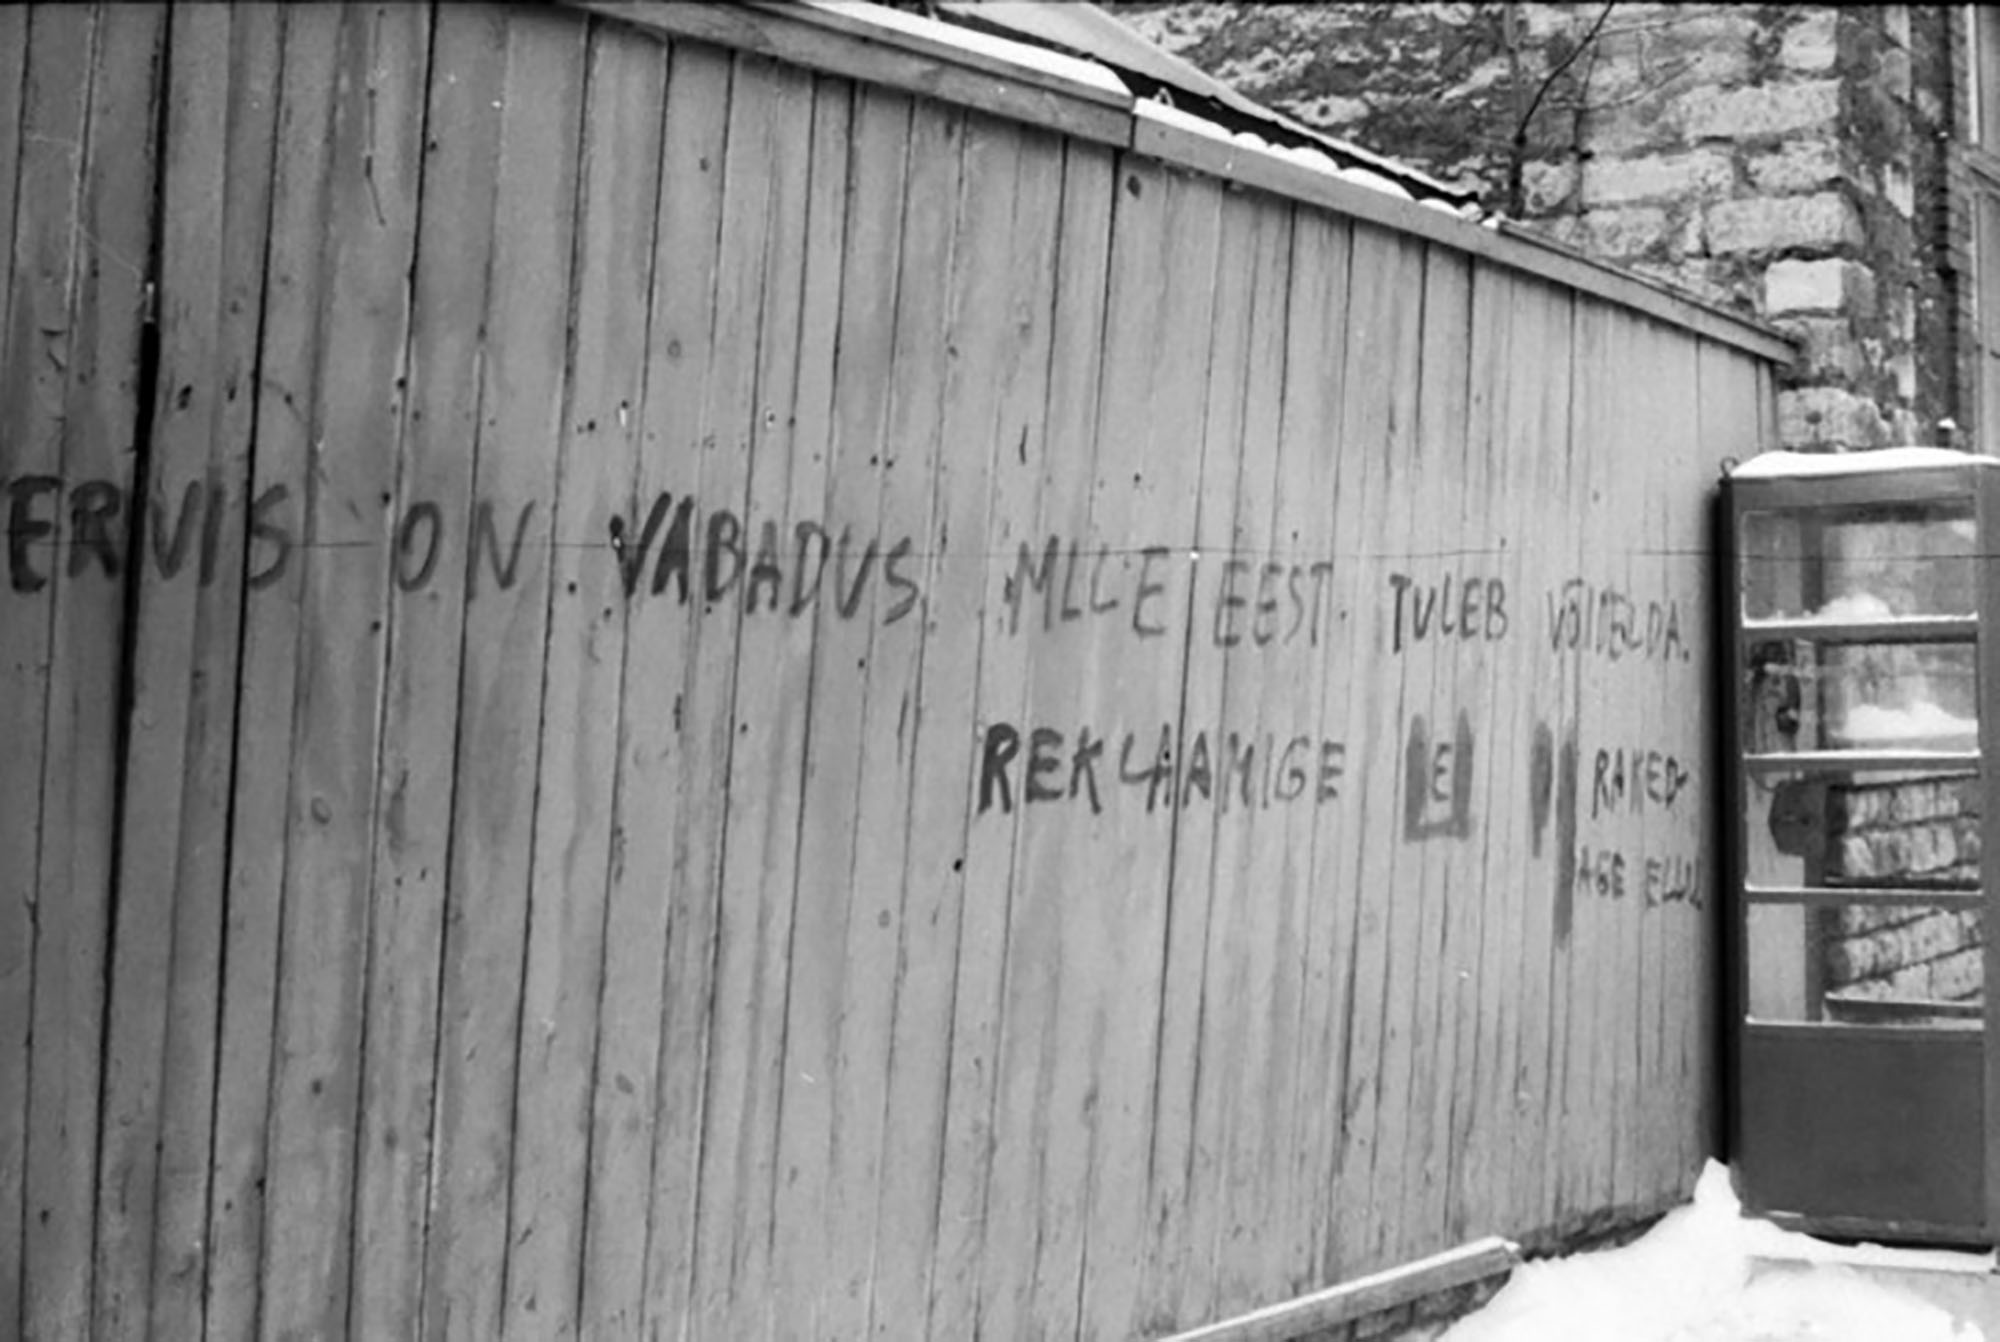 ERVIS ON VABADUS MLLE EEST TULEB VÕIDELDA.
REKLAAMIGE E RAKED-
AGE ELLU